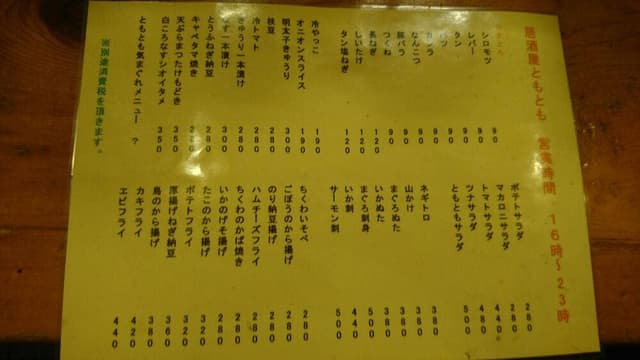 居酒屋ともとも 営業時間 16時~23時
シロモツ 90
レバー 90
タン 90
ハツ 90
カシラ 90
なんこつ 90
豚バラ 90
つくね 90
長ねぎ 120
しいたけ 120
タン塩ねぎ 120
冷やっこ 190
オニオンスライス 190
明太子きゅうり 300
枝豆 280
冷トマト 280
きゅうり一本漬け 280
なす一本漬け 300
とうふねぎ納豆 280
キャベタマ焼き 280
天ぷらまつたけもどき 350
白ころなすシオイタメ 350
ともとも気まぐれメニュー ?
※別途消費税を頂きます。
ポテトサラダ 280
マカロニサラダ 280
トマトサラダ 440
ツナサラダ 480
ともともサラダ 500
ネギトロ 380
山かけ 380
まぐろぬた 380
いかぬた 380
まぐろ刺身 500
いか刺 440
サーモン刺 500
ちくわいそべ 280
ごぼうのから揚げ 280
のり納豆揚げ 280
ハムチーズフライ 280
ちくわのかば焼き 280
いかのげそ揚げ 280
たこのから揚げ 320
ポテトフライ 320
厚揚げねぎ納豆 360
鳥のから揚げ 380
カキフライ 420
エビフライ 440